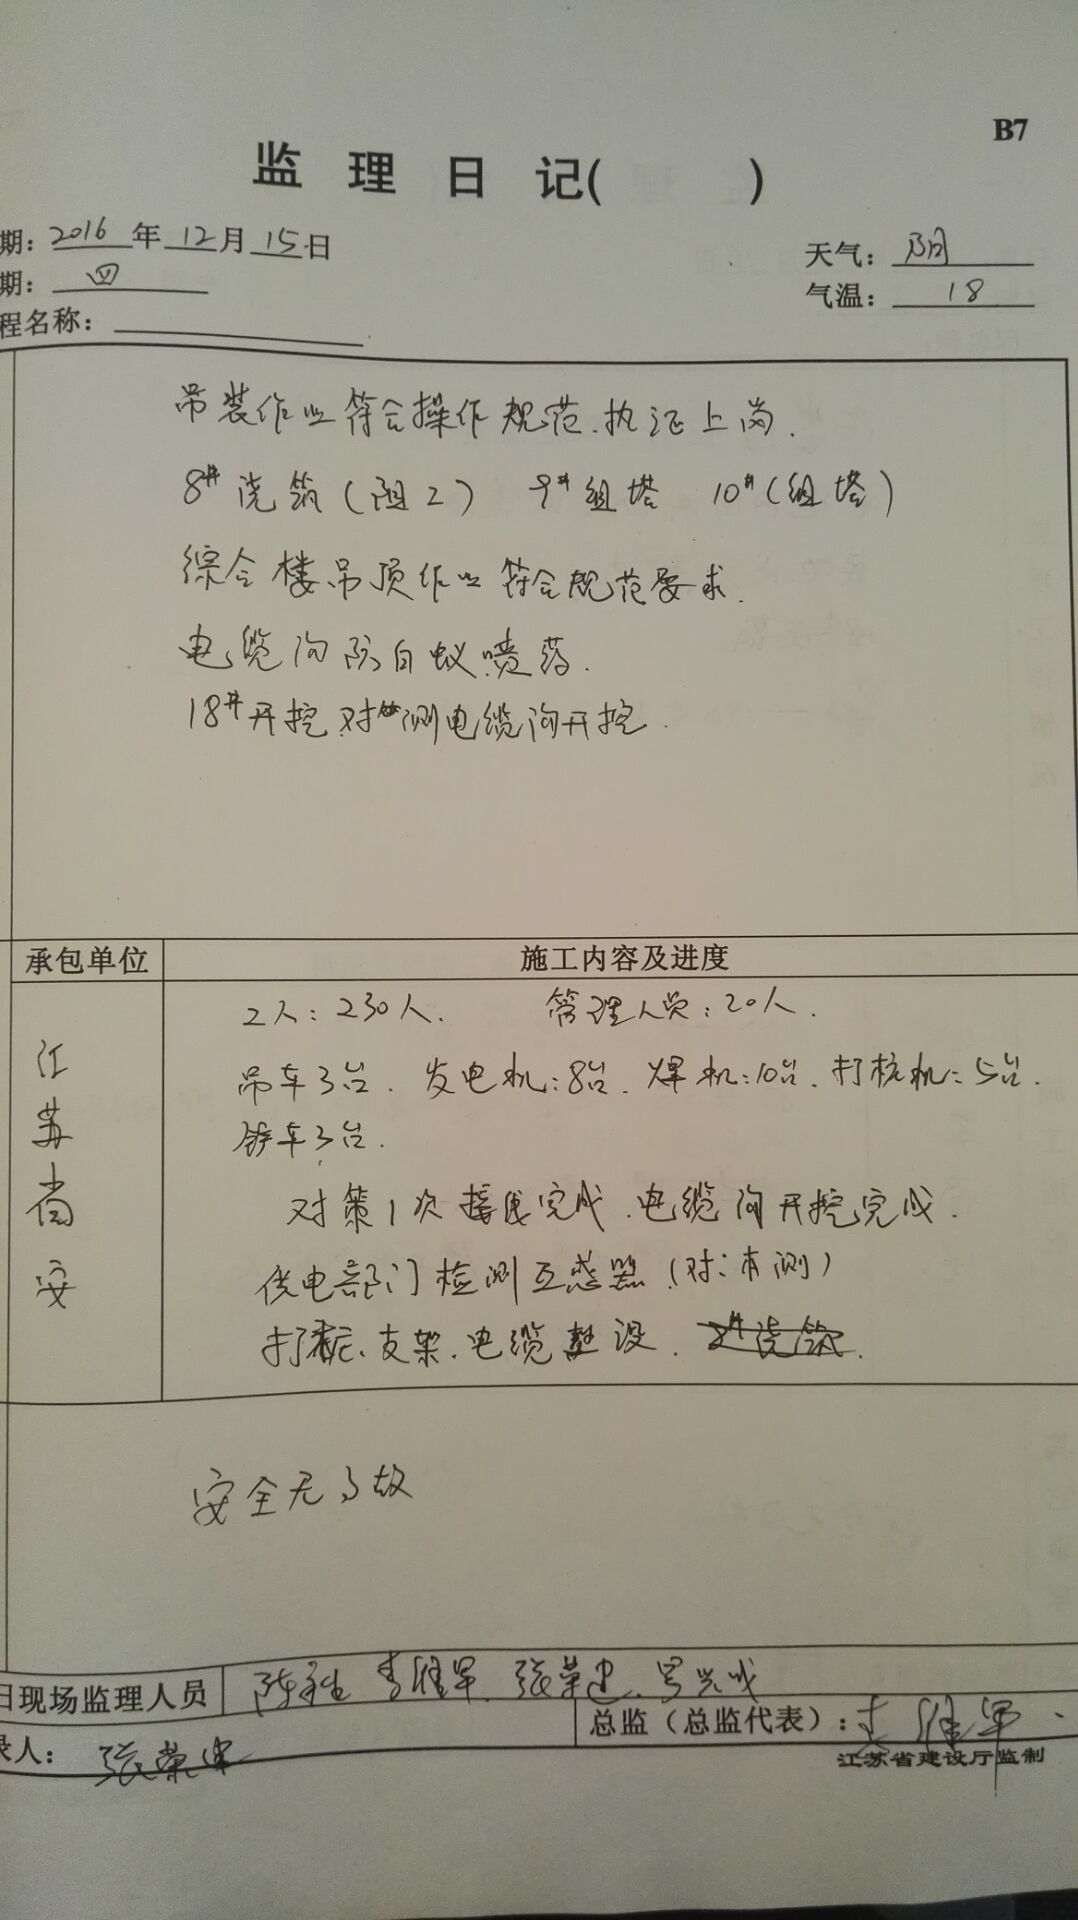 B7
监 理 日 记( )
期: 2016 年 12 月 15 日
天气: 阴
期: 四
气温: 18
程名称:
吊装作业符合操作规范.执证上岗.
8# 浇筑(阻工) 9#组塔 10#(组塔)
综合楼吊顶作业符合规范要求.
电缆沟防白蚁喷药.
18#开挖.对侧电缆沟开挖.
承包单位
施工内容及进度
江苏尚安
工人:230人. 管理人员:20人.
吊车3台. 发电机:8台. 焊机:10台. 打桩机:5台.
铲车3台.
对第1次接线完成.电缆沟开挖完成.
供电部门检测互感器(对:本测)
打桩、支架、电缆敷设.
安全无事故
日现场监理人员
张荣建
总监(总监代表):
录人: 张荣建
江苏省建设厅监制